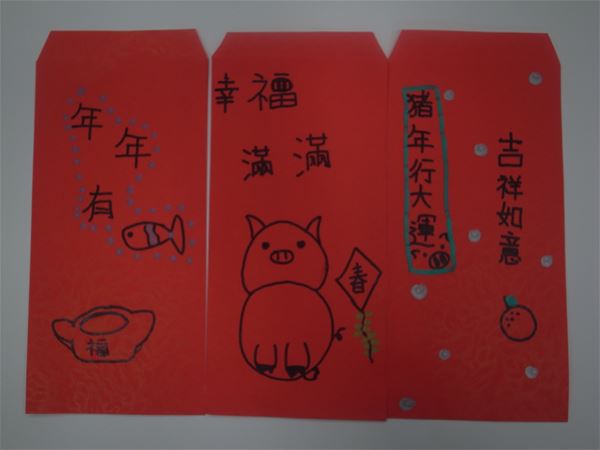 年年有
福
幸福
滿滿
春
猪年行大運
吉祥如意